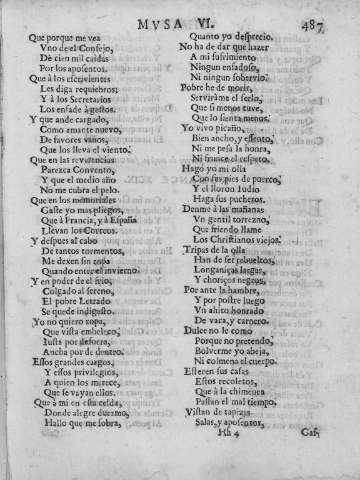 MVSA VI. 487
Que porque me vea
Vno de el Consejo,
Dè cien mil caidas
Por los aposentos.
Que à los escrivientes
Les diga requiebros;
Y à los Secretarios
Los enfade à gestos.
Y que ande cargado,
Como amante nuevo,
De favores vanos,
Que los lleva el viento.
Que en las reverencias
Parezca Convento,
Y que el medio año
No me cubra el pelo.
Que en los memoriales
Gaste yo mas pliegos,
Que à Francia, y à España
Llevan los Correos.
Y despues al cabo
De tantos tormentos,
Me dexen sin ropa
Quando entre el invierno.
Y en poder de el frio,
Colgado al sereno,
El pobre Letrado
Se quede indigesto.
Yo no quiero ropa,
Que vista embeleco,
Iusta por defuera,
Ancha por de dentro.
Essos grandes cargos,
Y essos privilegios,
A quien los merece,
Que se vayan ellos.
Que à mi en esta celda,
Donde alegre duermo,
Hallo que me sobra,
Quanto yo desprecio.
No ha de dar que hazer
A mi sufrimiento
Ningun enfadoso,
Ni ningun sobervio.
Pobre he de morir,
Servirame el serlo,
Que si menos tuve,
Que lo sienta menos.
Yo vivo picaño,
Bien ancho, y essento,
Ni me pesa la honra,
Ni frunce el respeto.
Hago yo mi olla
Con sus pies de puerco,
Y el lloron Iudio
Haga sus pucheros.
Denme à las mañanas
Vn gentil torrezno,
Que friendo llame
Los Christianos viejos.
Tripas de la olla
Han de ser rebueltos,
Longaniças largas,
Y choriços negros.
Por ante la hambre,
Y por postre luego
Vn ahito honrado
De vaca, y carnero.
Dulce no le como
Porque no pretendo,
Bolverme yo abeja,
Ni colmena el cuerpo.
Esteren sus casas
Estos recoletos,
Que à la chimenea
Passan el mal tiempo.
Vistan de tapizes
Salas, y aposentos,
Hh 4 Gas-